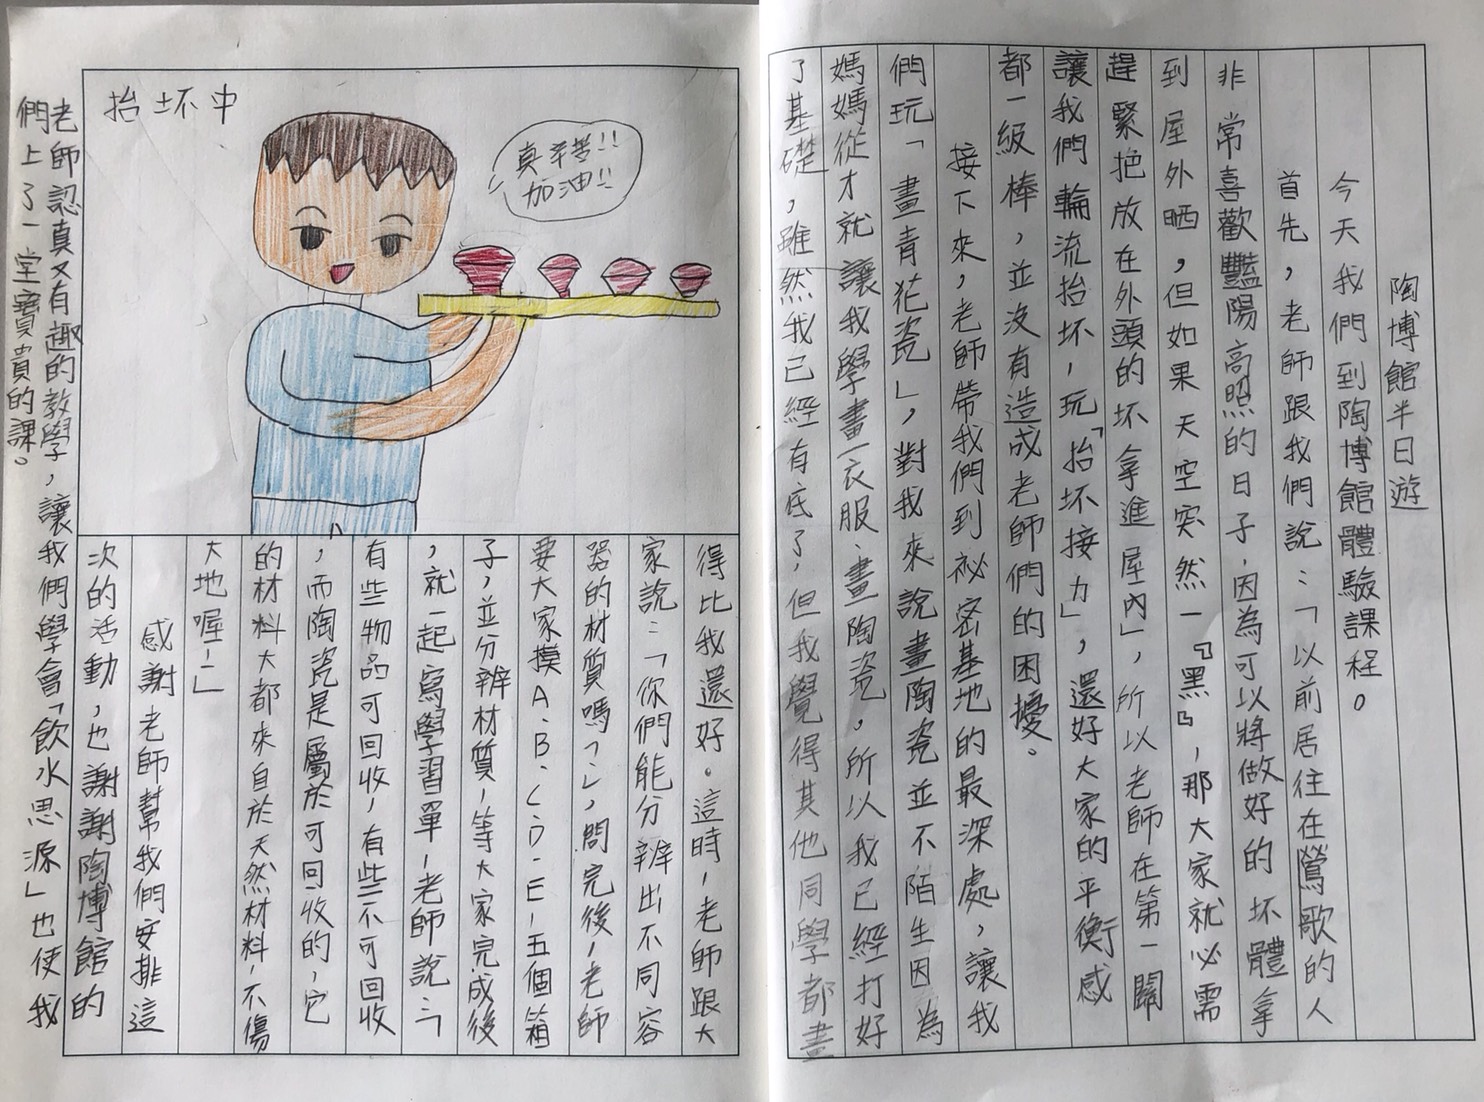 陶博館半日遊
今天我們到陶博館體驗課程。
首先，老師跟我們說：「以前居住在鶯歌的人
非常喜歡豔陽高照的日子，因為可以將做好的坏體拿
到屋外晒，但如果天空突然一『黑』，那大家就必需
趕緊把放在外頭的坏拿進屋內」，所以老師在第一關
讓我們輪流抬坏，玩「抬坏接力」，還好大家的平衡感
都一級棒，並沒有造成老師們的困擾。
接下來，老師帶我們到祕密基地的最深處，讓我
們玩「畫青花瓷」，對我來說畫陶瓷並不陌生因為
媽媽從才就讓我學畫衣服、畫陶瓷，所以我已經打好
了基礎，雖然我已經有底了，但我覺得其他同學都畫
抬坏中
真辛苦!!
加油!!
得比我還好。這時，老師跟大
家說：「你們能分辨出不同容
器的材質嗎？」，問完後，老師
要大家摸A、B、C、D、E，五個箱
子，並分辨材質，等大家完成後
，就一起寫學習單，老師說：「
有些物品可回收，有些不可回收
，而陶瓷是屬於可回收的，它
的材料大都來自於天然材料，不傷
大地喔！」
感謝老師幫我們安排這
次的活動，也謝謝陶博館的
老師認真又有趣的教學，讓我們學會「飲水思源」也使我
們上了一堂寶貴的課。